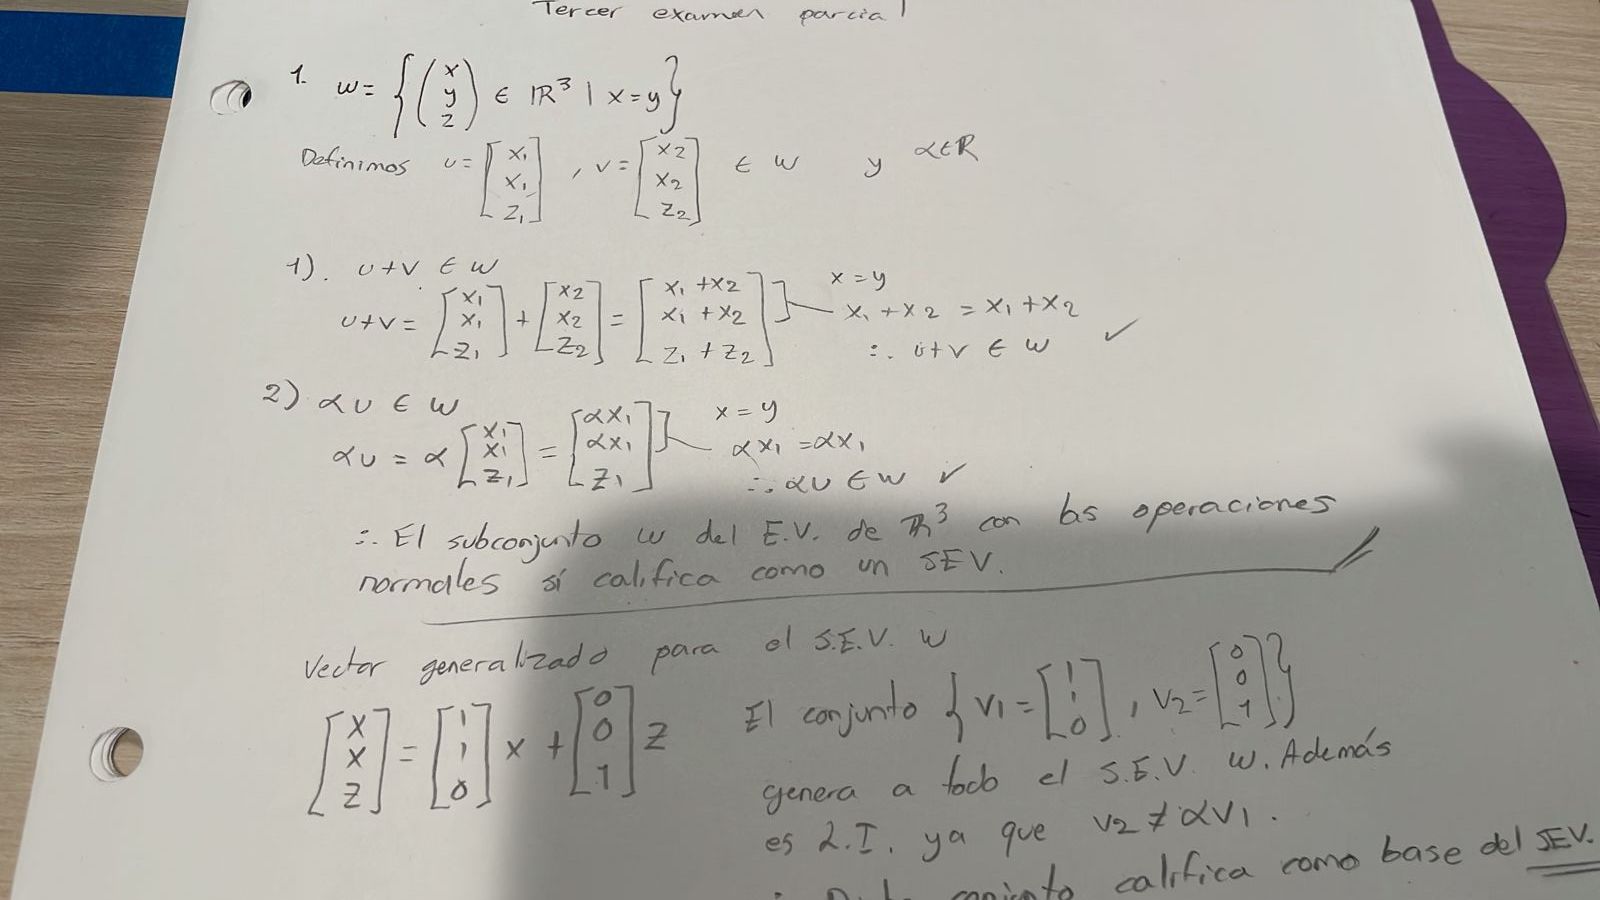 Tercer examen parcial
1. W = { (x y z) ∈ ℝ³ | x = y }
Definimos u = [x₁ x₁ z₁] , v = [x₂ x₂ z₂] ∈ W y α∈ℝ
1). u+v ∈ W
u+v = [x₁ x₁ z₁] + [x₂ x₂ z₂] = [x₁+x₂ x₁+x₂ z₁+z₂] x = y
x₁+x₂ = x₁+x₂
∴ u+v ∈ W ✓
2) αu ∈ W
αu = α [x₁ x₁ z₁] = [αx₁ αx₁ z₁] x = y
αx₁ = αx₁
∴ αu ∈ W ✓
∴ El subconjunto W del E.V. de ℝ³ con las operaciones
normales sí califica como un SEV.
Vector generalizado para el S.E.V. W
[x x z] = [1 1 0] x + [0 0 1] z
El conjunto { v1 = [1 1 0] , v2 = [0 0 1] }
genera a todo el S.E.V. W. Además
es L.I. ya que v2 ≠ αv1.
∴ conjunto califica como base del SEV.